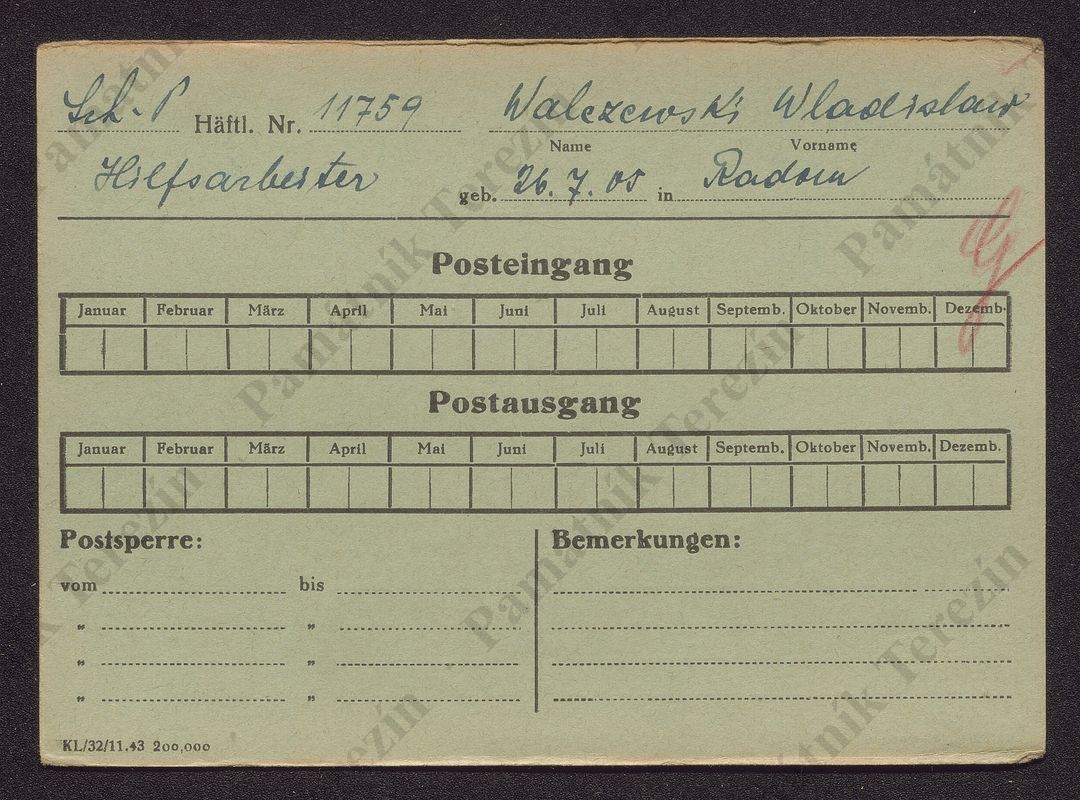 Sch.-P Häftl. Nr. 11759 Walczewski Wladislaw
Name Vorname
Hilfsarbeiter geb. 26.7.05 in Radom
Posteingang
Januar Februar März April Mai Juni Juli August Septemb. Oktober Novemb. Dezemb.
Postausgang
Januar Februar März April Mai Juni Juli August Septemb. Oktober Novemb. Dezemb.
Postsperre: Bemerkungen:
vom bis
" "
" "
" "
KL/32/11.43 200,000
Památník Terezín